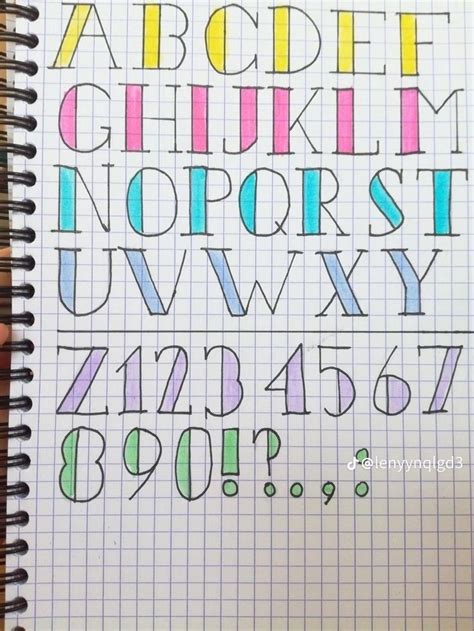 ABCDEF
GHIJKLM
NOPQRST
UVWXY
Z1234567
890!?..,:
@lenyynqlgd3